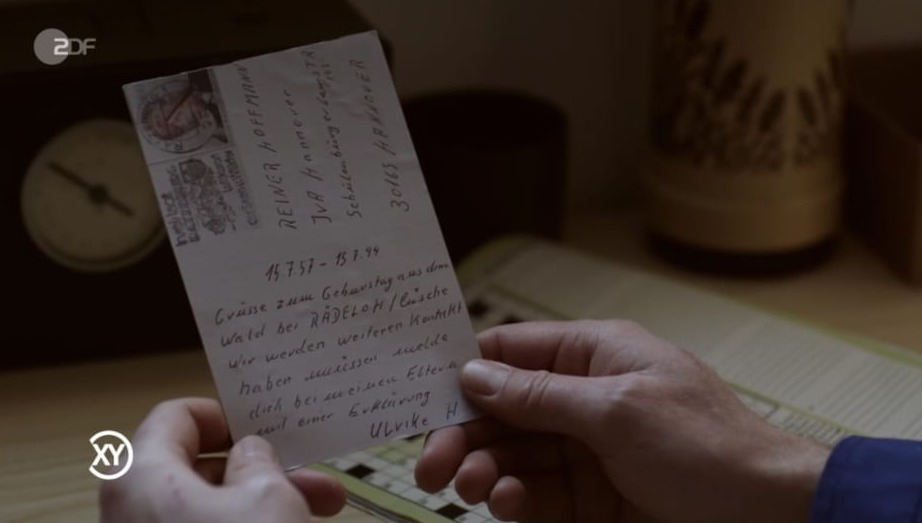 ZDF
REINER HOFFMANN
JVA Hannover
30165 HANNOVER
15.7.57 – 15.7.94
Grüsse zum Geburtstag aus dem
Wald bei RÄDELOH / Lüsche
Wir werden weiteren Kontakt
haben müssen melde
dich bei meinen Eltern
mit einer Erklärung
Ulrike H
XY